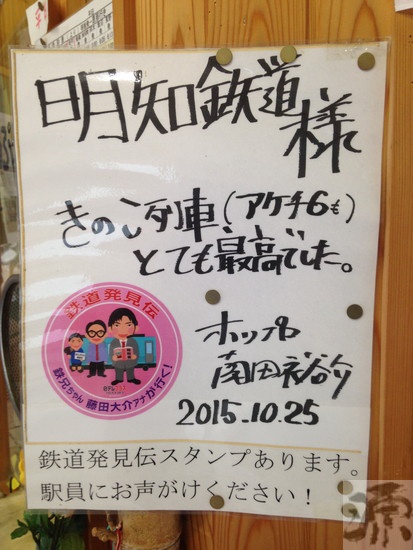 明知鉄道様
きのこ列車(アケチ6も)
とても最高でした。
鉄道発見伝
鉄兄ちゃん 藤田大介アナが行く!
ホリプロ
南田裕介
2015.10.25
鉄道発見伝スタンプあります。
駅員にお声がけください!
源